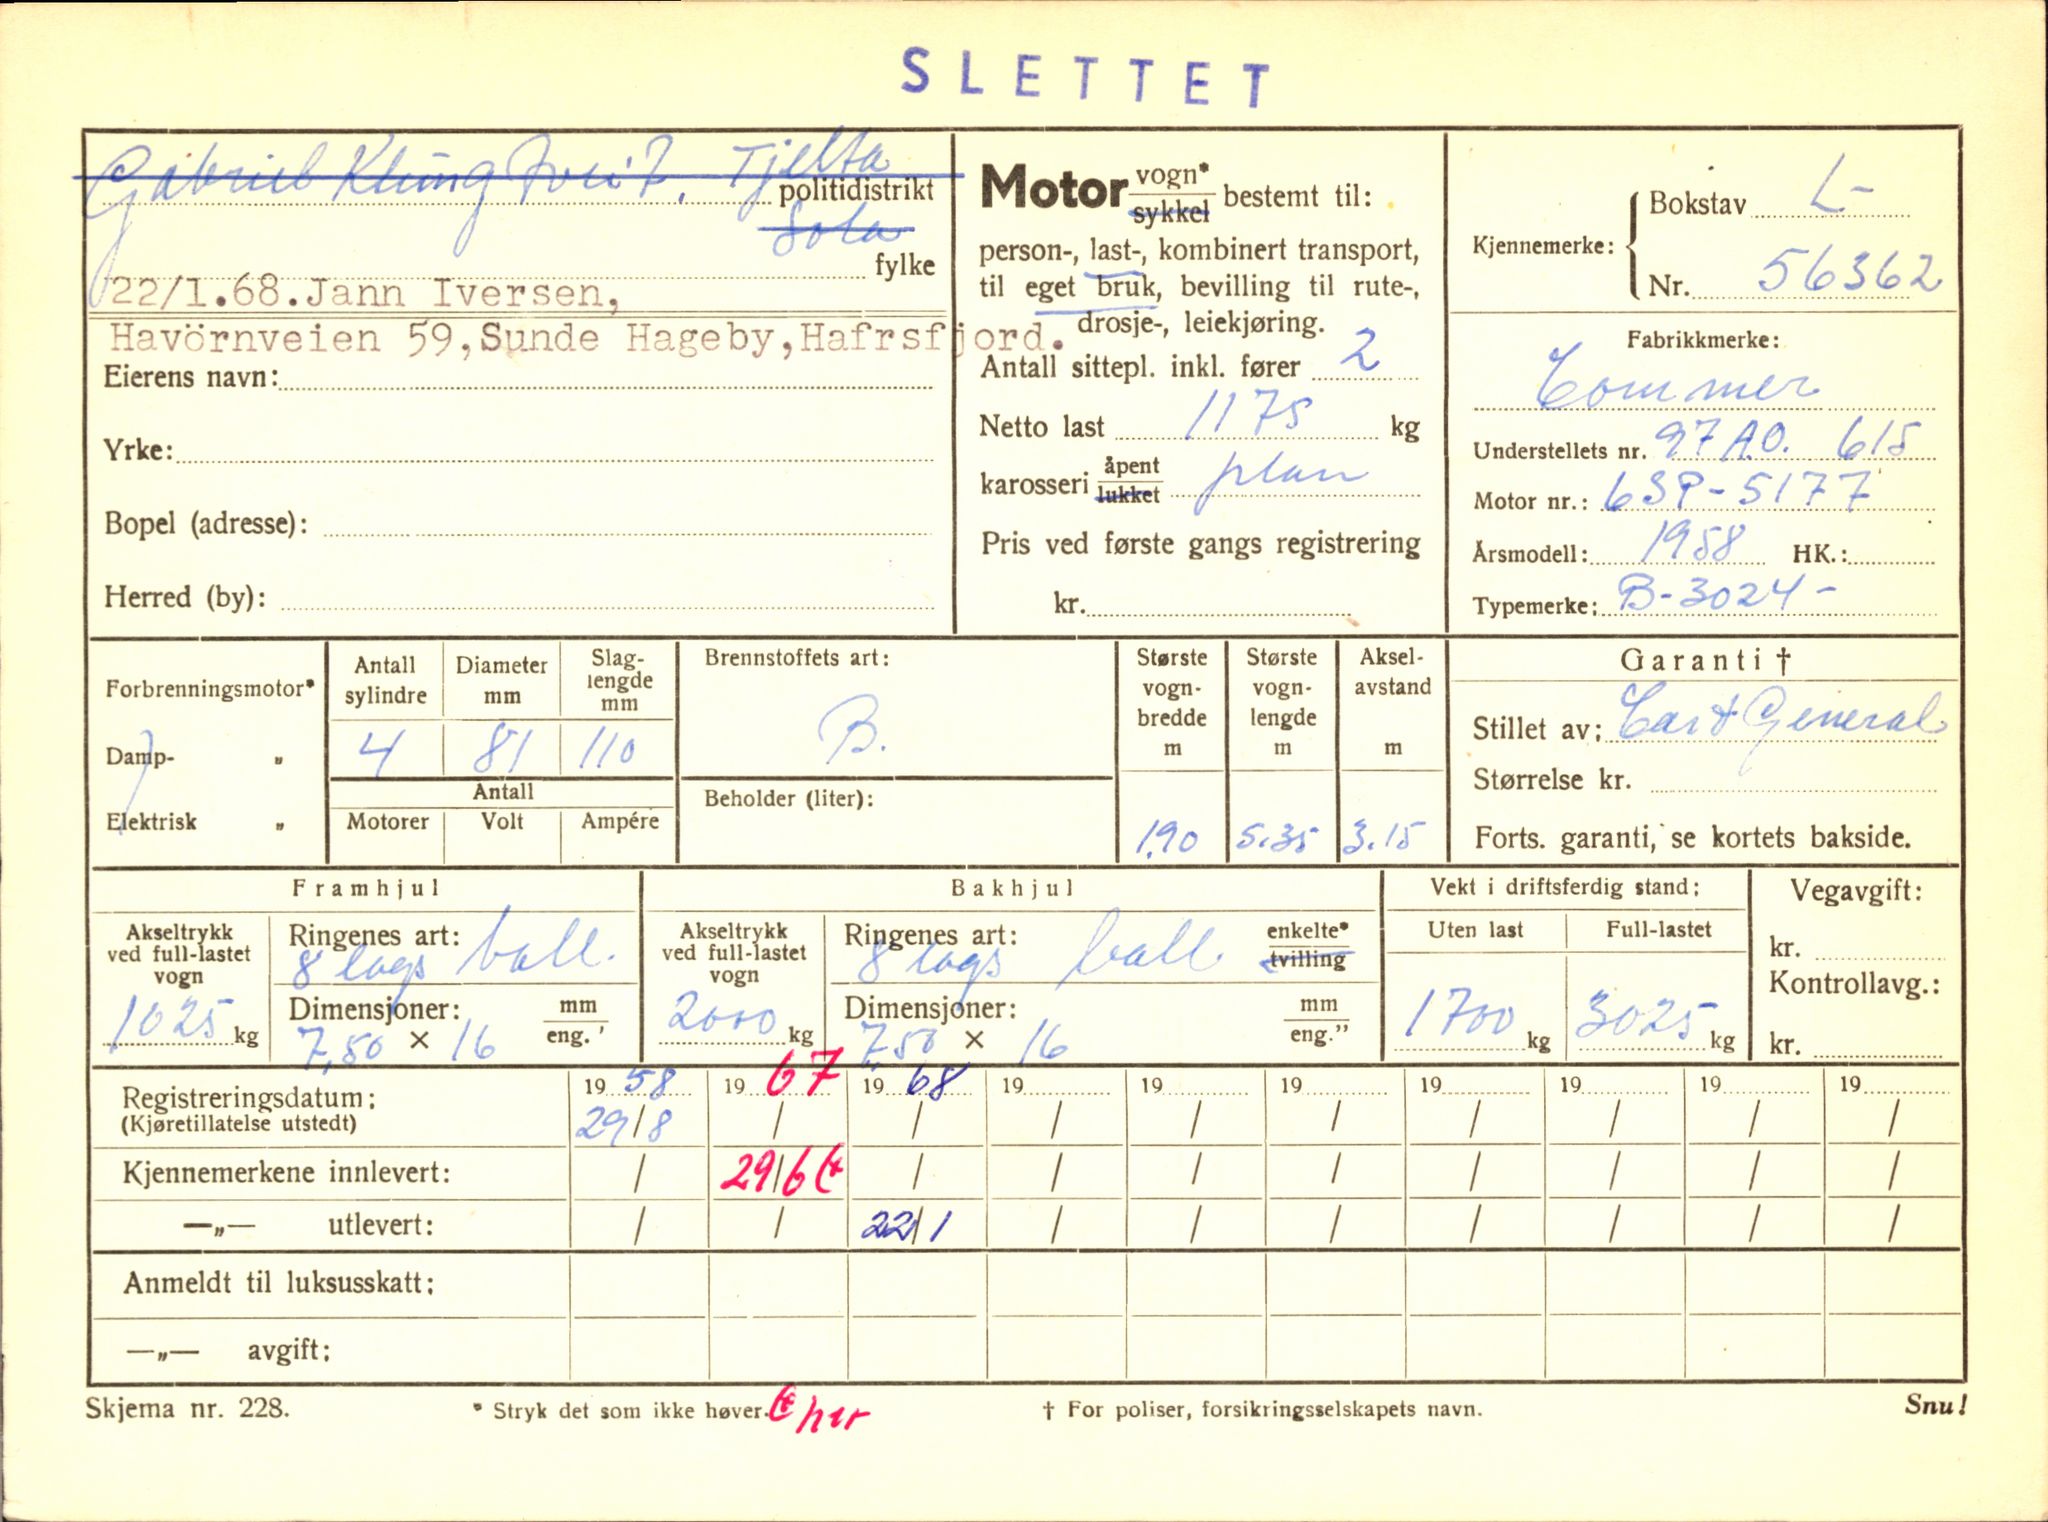 SLETTET
Gabriel Klungtveit, Tjelta
politidistrikt
Sola
fylke
22/1.68. Jann Iversen,
Havörnveien 59, Sunde Hageby, Hafrsfjord.
Eierens navn:
Yrke:
Bopel (adresse):
Herred (by):
Motor vogn* sykkel bestemt til:
person-, last-, kombinert transport,
til eget bruk, bevilling til rute-,
drosje-, leiekjøring.
Antall sittepl. inkl. fører 2
Netto last 1175 kg
karosseri åpent lukket plan
Pris ved første gangs registrering
kr.
Kjennemerke: Bokstav L-
Nr. 56362
Fabrikkmerke:
Commer
Understellets nr. 97 A.O. 615
Motor nr.: 6SP-5177
Årsmodell: 1958 HK.:
Typemerke: B-3024-
Forbrenningsmotor*
Damp- „
Elektrisk „
Antall sylindre
Diameter mm
Slag-lengde mm
4 81 110
Antall
Motorer Volt Ampére
Brennstoffets art:
B.
Beholder (liter):
Største vogn-bredde m
1.90
Største vogn-lengde m
5.35
Aksel-avstand m
3.15
Garanti †
Stillet av: Car & General
Størrelse kr.
Forts. garanti, se kortets bakside.
Framhjul
Akseltrykk ved full-lastet vogn
1025 kg
Ringenes art: ball.
8 lags
Dimensjoner: mm eng.'
7,50 × 16
Bakhjul
Akseltrykk ved full-lastet vogn
2000 kg
Ringenes art: ball. enkelte* tvilling
8 lags
Dimensjoner: mm eng."
7.50 × 16
Vekt i driftsferdig stand:
Uten last Full-lastet
1700 kg 3025 kg
Vegavgift:
kr.
Kontrollavg.:
kr.
19 58 19 67 19 68 19 19 19 19 19 19 19
Registreringsdatum: 29/8 / / / / / / / / /
(Kjøretillatelse utstedt)
Kjennemerkene innlevert: / 29/6 (* / / / / / / / /
—„— utlevert: / / 22/1 / / / / / / /
Anmeldt til luksusskatt:
—„— avgift:
Skjema nr. 228.
* Stryk det som ikke høver.
(* her
† For poliser, forsikringsselskapets navn.
Snu!